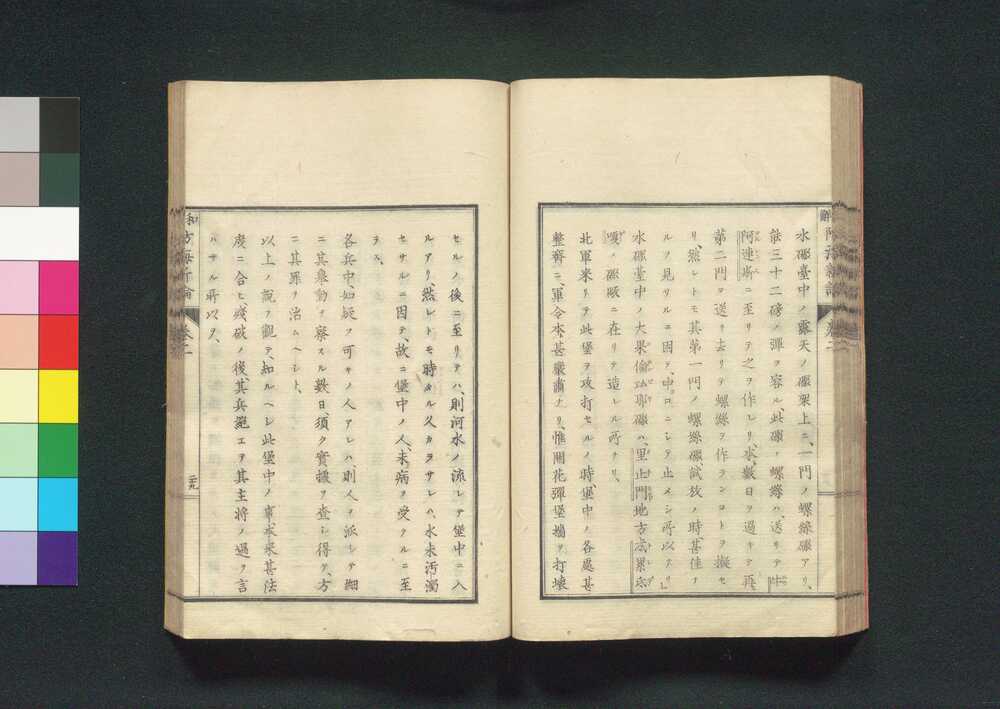 水礮臺中ノ露天ノ礮架上ニ、一門ノ螺絲礮アリ、
能三十二磅ノ彈ヲ容ル、此礮ノ螺絲ハ、送リテ牛
阿連斯ニ至リテ之ヲ作レリ、求數日ヲ過キテ再
第二門ヲ送リ去リテ螺絲ヲ作ランコトヲ擬セ
リ、然レトモ其第一門ノ螺絲礮、試放ノ時、甚佳ナ
ルヲ見サルニ因テ、中コニシテ止メシ所以ナリ
水礮臺中ノ大果倫 礮ハ、里止門地方
嘎ノ礮廠ニ在リテ造レル所ナリ、
北軍來リテ此堡ヲ攻打セルノ時、堡中ノ各處甚
整齊ニ、軍令亦甚嚴肅ナリ、惟開花彈堡墻ヲ打壞
セルノ後ニ至リテハ、則河水ノ流レテ堡中ニ入
ルアリ、然レトモ時久カラサレハ、水未汚濁
セサルニ因テ、故ニ堡中ノ人、未病ヲ受クルニ至
ラス、
各兵中、如疑フ可キノ人アレハ、則人ヲ派シテ細
ニ其擧動ヲ察スル數日、須ク實據ヲ査シ得テ、方
ニ其罪ヲ治ムヘシト、
以上ノ說ヲ觀テ、知ルヘシ此堡中ノ事、本來甚法
度ニ合ヒ、殘破ノ後、其兵絕エテ其主將ノ過ヲ言
ハサル所以ヲ、
卷二
二十九